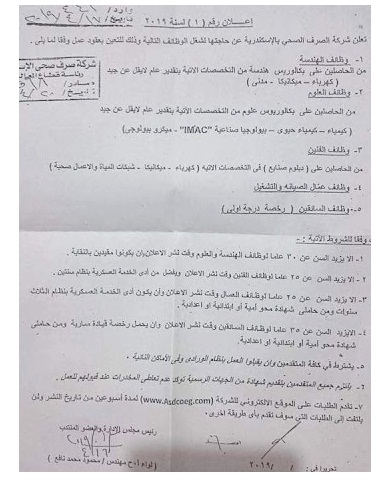 إعـــلان رقم (١) لسنة ٢٠١٩
تعلن شركة الصرف الصحي بالإسكندرية عن حاجتها لشغل الوظائف التالية وذلك للتعين بعقود عمل وفقا لما يلى .
١- وظائف الهندسة
من الحاصلين على بكالوريس هندسة من التخصصات الاتية بتقدير عام لايقل عن جيد
( كهرباء – ميكانيكا – مدنى )
٢- وظائف العلوم
من الحاصلين على بكالوريوس علوم من التخصصات الاتية بتقدير عام لايقل عن جيد
( كيمياء – كيمياء حيوى – بيولوجيا صناعية "IMAC" – ميكرو بيولوجى )
٣- وظائف الفنين
من الحاصلين على ( دبلوم صنايع ) فى التخصصات الاتية ( كهرباء – ميكانيكا – شبكات المياة والاعمال صحية )
٤- وظائف عمال الصيانه والتشغيل
٥- وظائف السائقين ( رخصة درجة اولى )
وفقا للشروط الآتية :-
١- الا يزيد السن عن ٣٠ عاما لوظائف الهندسة والعلوم وقت نشر الاعلان وان يكونوا مقيدين بالنقابة .
٢- الا يزيد السن عن ٢٥ عاما لوظائف الفنين وقت نشر الاعلان ويفضل من أدى الخدمة العسكرية بنظام سنتين .
٣- الا يزيد السن عن ٢٥ عاما لوظائف العمال وقت نشر الاعلان وأن يكون أدى الخدمة العسكرية بنظام الثلاث
سنوات ومن حاملى شهادة محو أمية أو ابتدائية او اعدادية .
٤- الايزيد السن عن ٣٥ عاما لوظائف السائقين وقت نشر الاعلان وان يحمل رخصة قيادة سارية ومن حاملى
شهادة محو أمية او ابتدائية او اعدادية .
٥- يشترط فى كافة المتقدمين وان يقبلوا العمل بنظام الورادى وفى الأماكن النائية .
٦- يلتزم جميع المتقدمين بتقديم شهادة من الجهات الرسمية تؤكد عدم تعاطى المخدرات عند قبولهم للعمل .
٧- تقدم الطلبات على الموقع الالكترونى للشركة (www.Asdcoeg.com) لمدة أسبوعين من تاريخ النشر ولن
يلتفت إلى الطلبات التى سوف تقدم بأى طريقة اخرى .
رئيس مجلس الإدارة والعضو المنتدب
( لواء أ.ح مهندس / محمود محمد نافع )
تحريرا فى / / ٢٠١٩